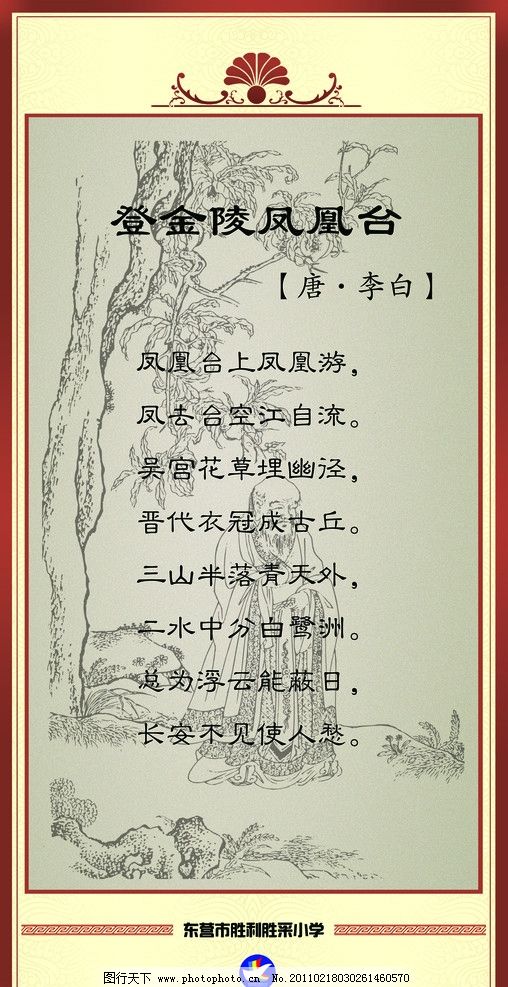 登金陵凤凰台
【唐·李白】
凤凰台上凤凰游，
凤去台空江自流。
吴宫花草埋幽径，
晋代衣冠成古丘。
三山半落青天外，
二水中分白鹭洲。
总为浮云能蔽日，
长安不见使人愁。
东营市胜利胜采小学
图行天下 www.photophoto.cn No.20110218030261460570